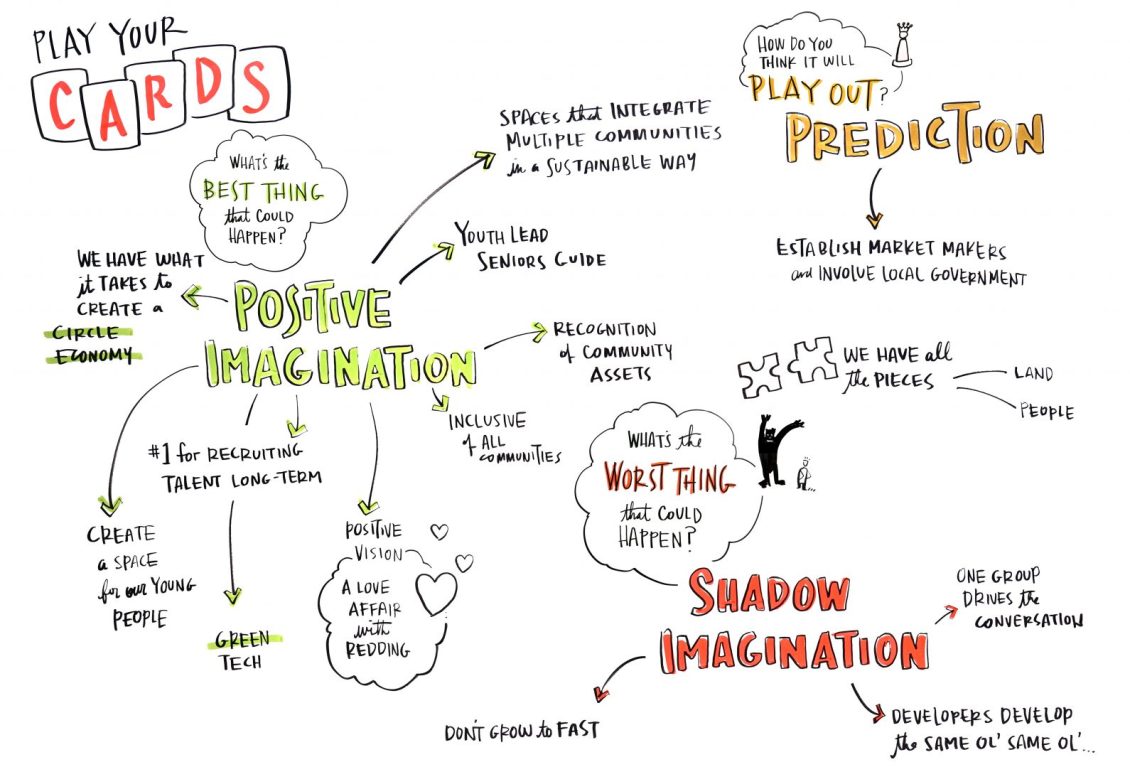 PLAY YOUR
CARDS
WHAT'S the
BEST THING
that COULD
HAPPEN?
POSITIVE
IMAGINATION
WE HAVE WHAT
it TAKES to
CREATE a
CIRCLE
ECONOMY
SPACES that INTEGRATE
MULTIPLE COMMUNITIES
in a SUSTAINABLE WAY
YOUTH LEAD
SENIORS GUIDE
RECOGNITION
of COMMUNITY
ASSETS
INCLUSIVE
of ALL
COMMUNITIES
#1 for RECRUITING
TALENT LONG-TERM
CREATE
a SPACE
for our YOUNG
PEOPLE
GREEN
TECH
POSITIVE
VISION
A LOVE
AFFAIR
with
REDDING
HOW DO YOU
THINK IT WILL
PLAY OUT?
PREDICTION
ESTABLISH MARKET MAKERS
and INVOLVE LOCAL GOVERNMENT
WE HAVE all
the PIECES
LAND
PEOPLE
WHAT'S the
WORST THING
that COULD
HAPPEN?
SHADOW
IMAGINATION
ONE GROUP
DRIVES the
CONVERSATION
DON'T GROW to FAST
DEVELOPERS DEVELOP
the SAME OL' SAME OL'...